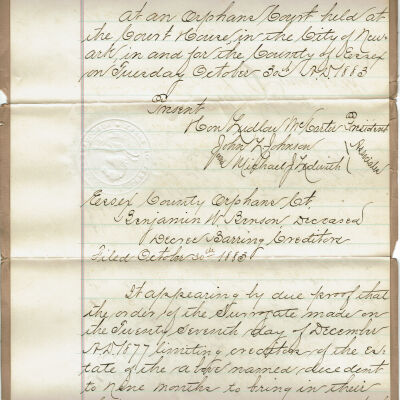 At an Orphans Court held at
the Court House in the City of New-
ark, in and for the County of Essex
on Tuesday October 30th A.D. 1883
Present
Hon Ludlow McCarter President
John L Johnson
James Michael J Ledwith
Associates
Essex County Orphans Ct.
Benjamin W Benson, Deceased
Decree Barring Creditors
Filed October 30th 1883
It appearing by due proof that
the order of the Surrogate made on
the Twenty Seventh day of December
A.D. 1877 limiting creditors of the es-
tate of the above named decedent
to nine months to bring in their